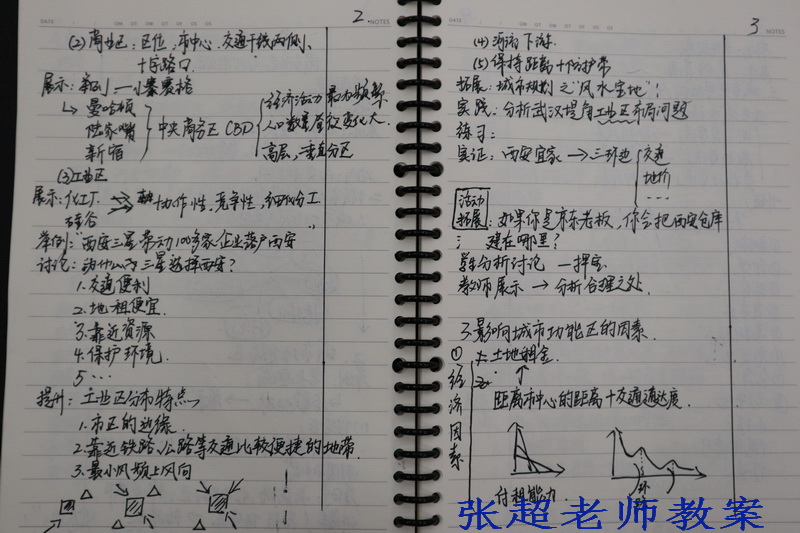 2.
NOTES
(2) 商业区：区位：市中心、交通干线两侧、
十字路口
展示：举例——小寨赛格
曼哈顿
陆家嘴
新宿
中央商务区 CBD
经济活动最为频繁
人口数量昼夜变化大
高层，垂直分区
(3) 工业区
展示：化工厂
硅谷
协作性、竞争性，细化分工
举例："西安三星带动100多家企业落户西安"
讨论：为什么三星选择西安？
1. 交通便利
2. 地租便宜
3. 靠近资源
4. 保护环境
5 …
提升：工业区分布特点
1. 市区的边缘
2. 靠近铁路、公路等交通比较便捷的地带
3. 最小风频上风向
3
NOTES
(4) 河流下游
(5) 保持距离+防护带
拓展：城市规划之"风水宝地"！
实践：分析武汉提角工业区布局问题
练习：
实证：西安宜家→三环边
交通
地价
…
活动
拓展：如果你是京东老板，你会把西安仓库
建在哪里？
学生分析讨论
教师展示 → 分析合理之处
3. 影响城市功能区的因素
① 经济因素
1. 土地租金
2.
距离市中心的距离+交通通达度
付租能力
环
张超老师教案